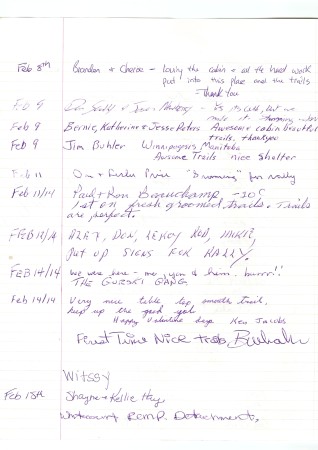 Feb 8th Brandon & Cheree - loving the cabin & all the hard work
put into this place and the trails
Thank you
Feb 9 Don Scott & - it's cold, but we
made it
Feb 9 Bernie, Katherine & Jesse Peters Awesome cabin beautiful
trails, thankyou
Feb 9 Jim Buhler Winnipegosis Manitoba
Awsome Trails nice shelter
Feb 11 On a for rally
Feb 11/14 Paul & Ron Beauchamp -10°C
1st on fresh groomed tracks. Trails
are perfect.
FEB 12/14 DON, LEROY ROD,
PUT UP SIGNS FOR RALLY.
FEB 14/14 We were here - me, you & him. burrr!!
THE GURSKI GANG
Feb 14/14 Very nice table top smooth trail,
keep up the good job
Happy Valentine days Ken Jacobs
First Time Nice trails,
Witssy
Feb 18th Shayne & Kellie Hay
R.C.M.P. Detachment,